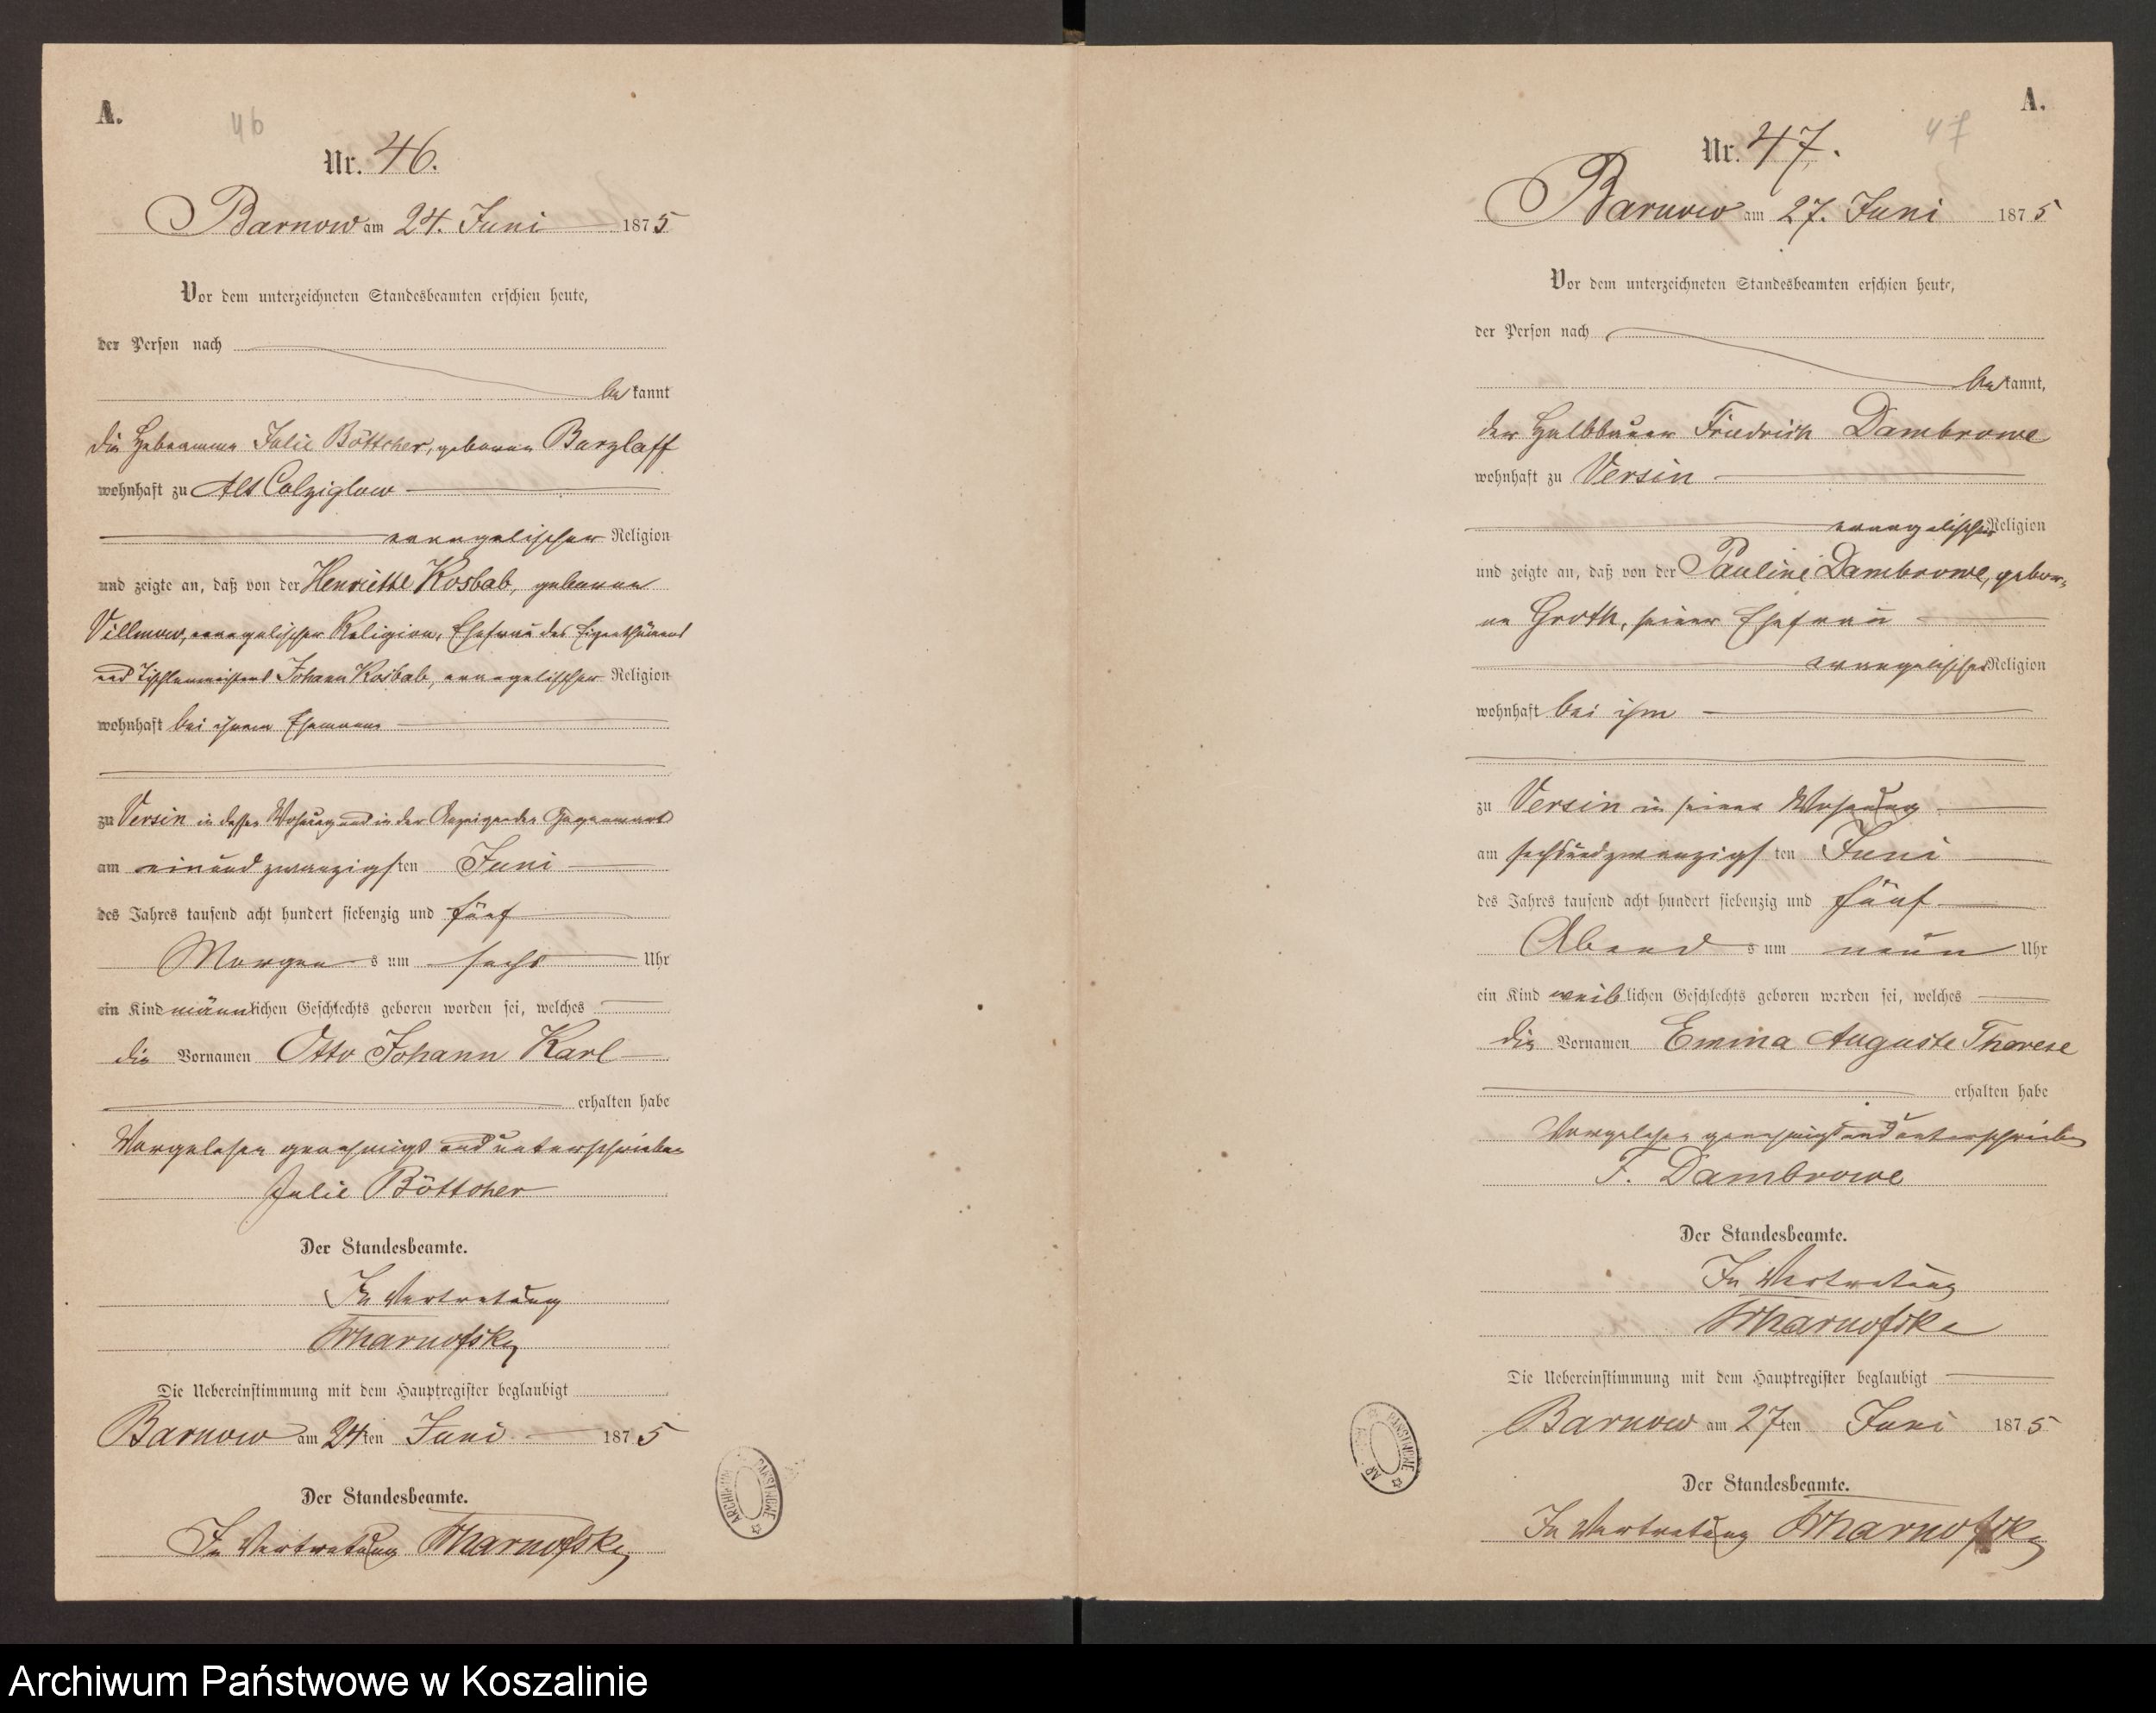 A.
46
Nr. 46.
Barnow am 24. Juni 1875
Vor dem unterzeichneten Standesbeamten erschien heute,
der Person nach
bekannt
die Hebeamme Julie Böttcher, geborene Barzlaff
wohnhaft zu Alt Colziglow
evangelischer Religion
und zeigte an, daß von der Henriette Kosbab, geborene
Villmow, evangelischer Religion, Ehefrau des Eigenthümers
und Tischlermeisters Johann Kosbab, evangelischer Religion
wohnhaft bei ihrem Ehemanne
zu Versin in dessen Wohnung und in der Anzeigenden Gegenwart
am einundzwanzigsten Juni
des Jahres tausend acht hundert siebenzig und fünf
Morgens um sechs Uhr
ein Kind männlichen Geschlechts geboren worden sei, welches
die Vornamen Otto Johann Karl
erhalten habe
Vorgelesen genehmigt und unterschrieben
Julie Böttcher
Der Standesbeamte.
In Vertretung
Die Uebereinstimmung mit dem Hauptregister beglaubigt
Barnow am 24ten Juni 1875
Der Standesbeamte.
In Vertretung
ARCHIWUM PAŃSTWOWE
A.
47
Nr. 47.
Barnow am 27. Juni 1875
Vor dem unterzeichneten Standesbeamten erschien heute,
der Person nach
bekannt,
der Halbbauer Friedrich Dambrowe
wohnhaft zu Versin
evangelischer Religion
und zeigte an, daß von der Pauline Dambrowe, gebor-
ne Groth, seiner Ehefrau
evangelischer Religion
wohnhaft bei ihm
zu Versin in seiner Wohnung
am sechsundzwanzigsten Juni
des Jahres tausend acht hundert siebenzig und fünf
Abends um neun Uhr
ein Kind weiblichen Geschlechts geboren worden sei, welches
die Vornamen Emma Auguste Therese
erhalten habe
Vorgelesen genehmigt und unterschrieben
F. Dambrowe
Der Standesbeamte.
In Vertretung
Die Uebereinstimmung mit dem Hauptregister beglaubigt
Barnow am 27ten Juni 1875
Der Standesbeamte.
In Vertretung
Archiwum Państwowe w Koszalinie